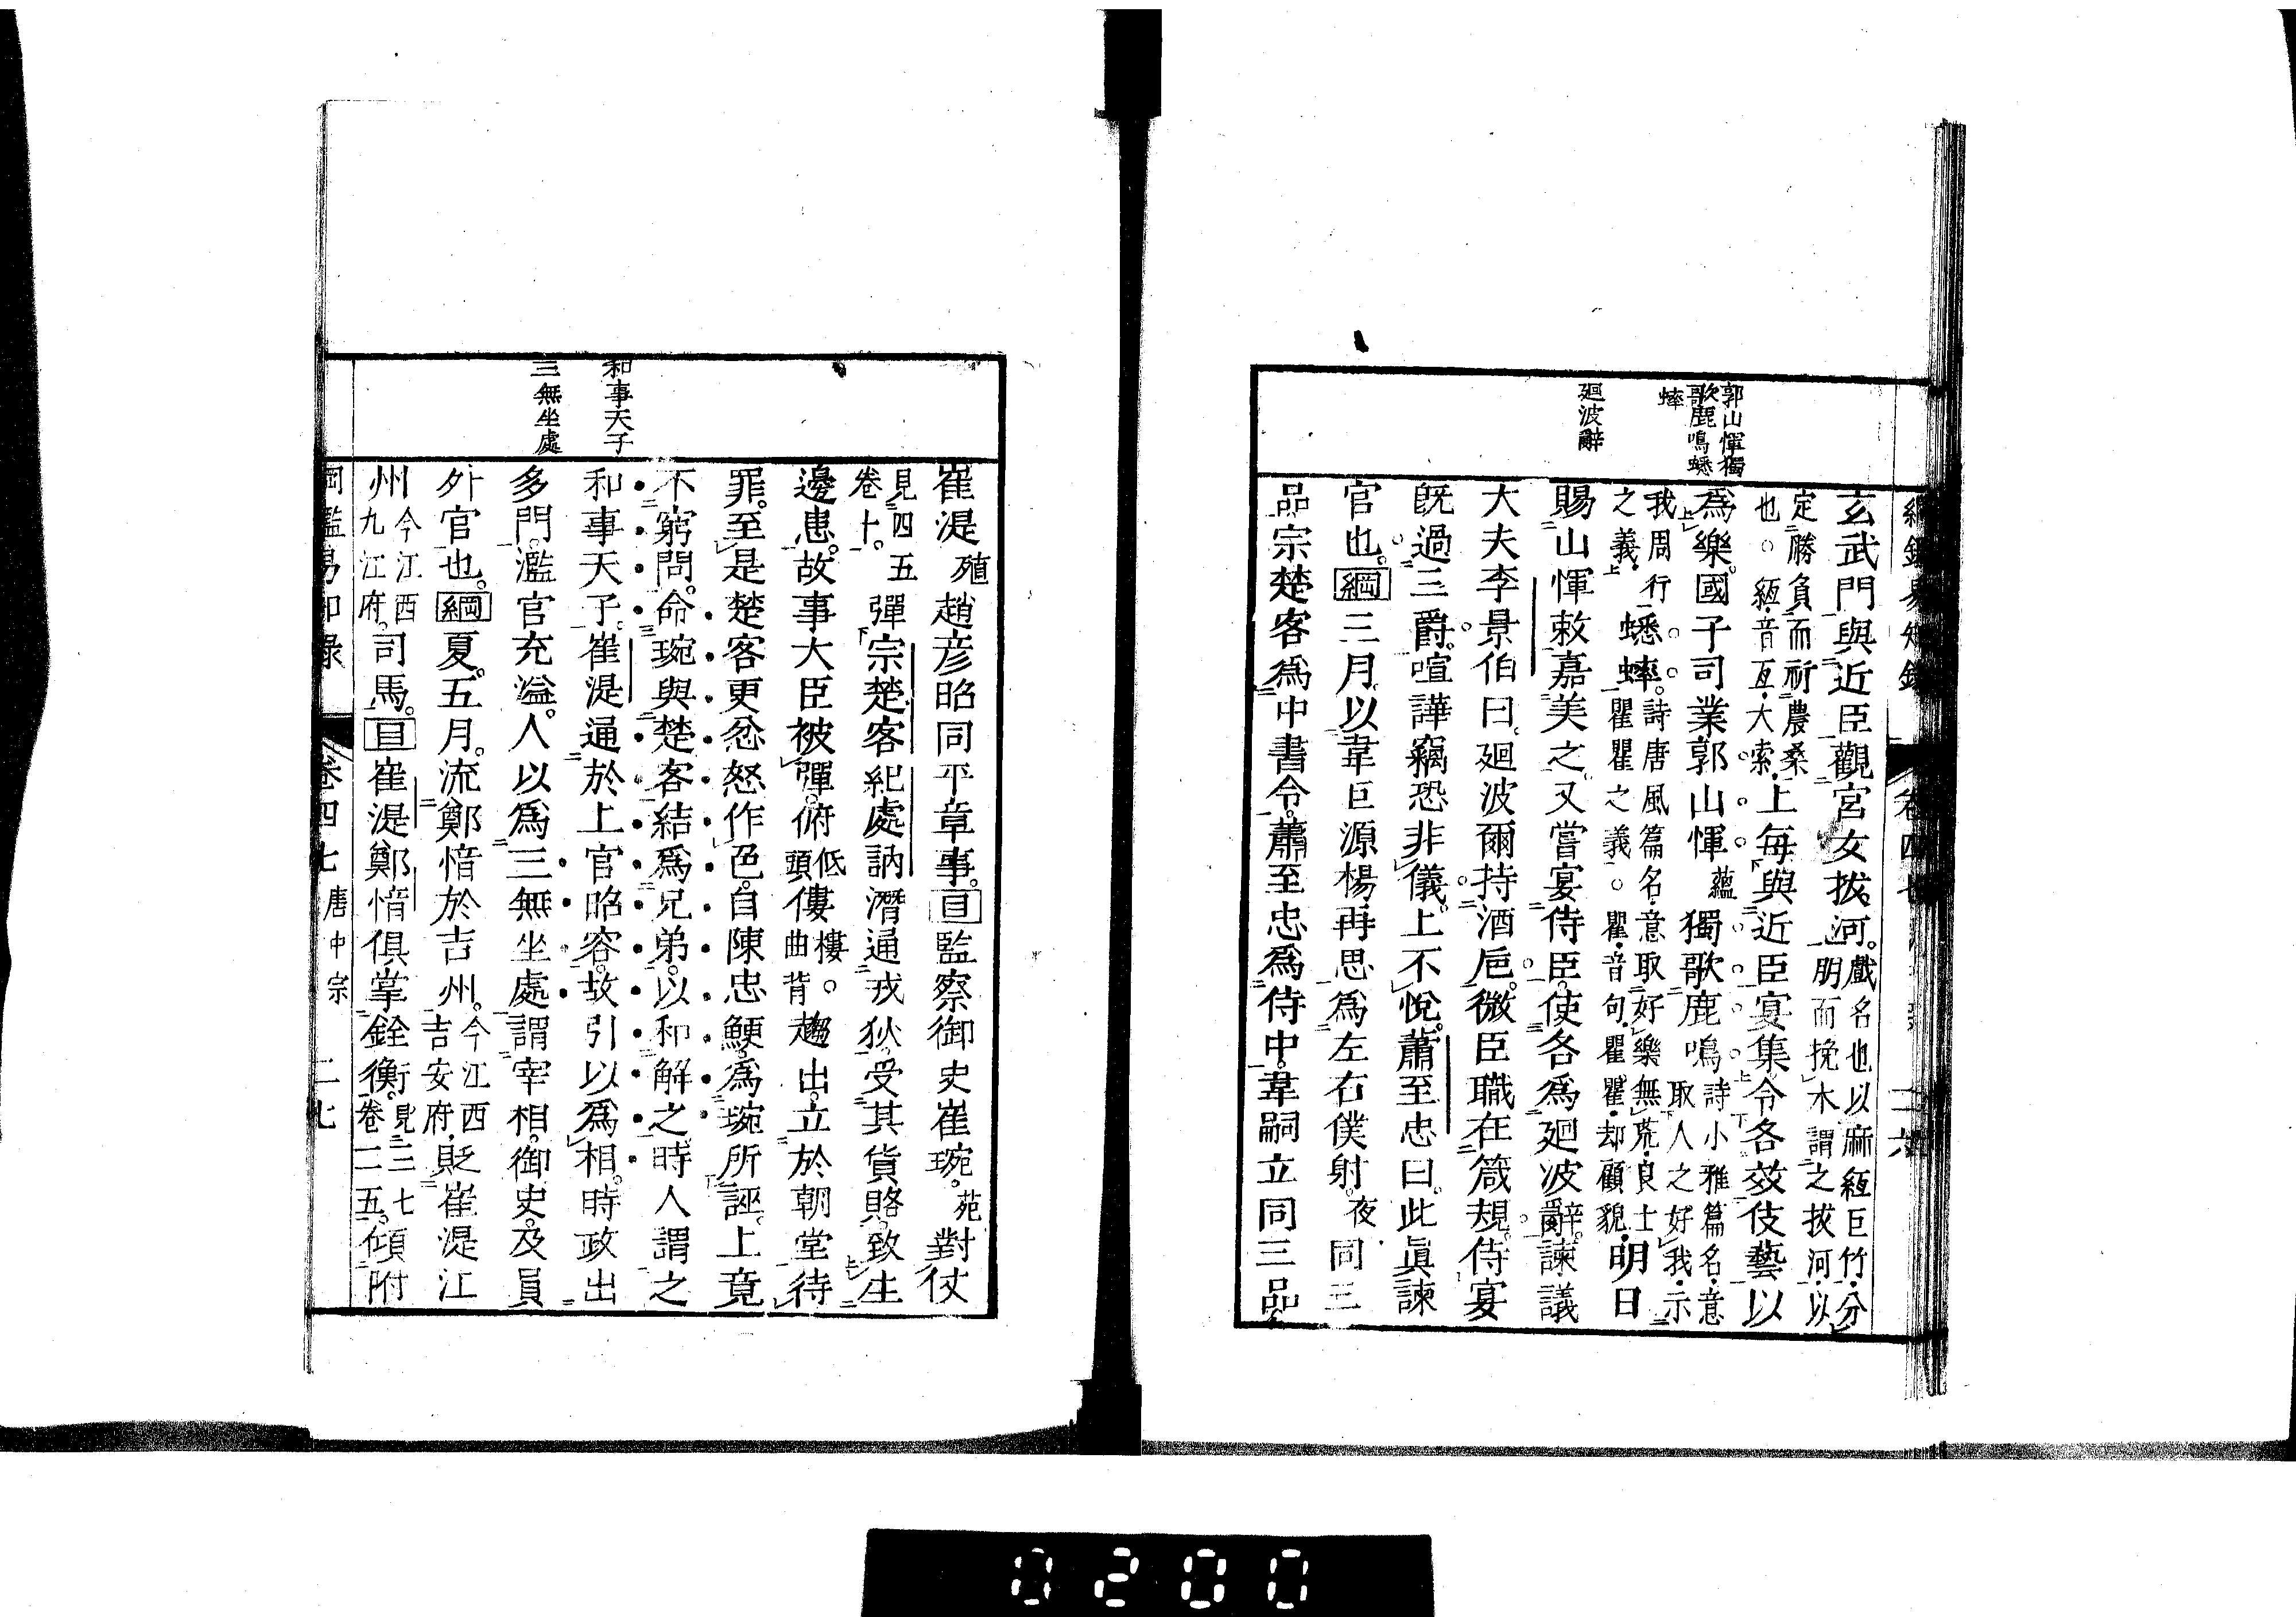 綱鑑易知錄 卷四七 二六
郭山惲獨
歌鹿鳴蟋
蟀
廻波辭
玄武門與近臣觀宮女拔河。戲名也以麻絙巨竹分
朋而挽木謂之拔河以
定勝負而祈農桑
也。絙音亙大索上每與近臣宴集令各效伎藝以
爲樂國子司業郭山惲蘊獨歌鹿鳴詩小雅篇名意
取人之好我示
我周行蟋蟀。詩唐風篇名意取好樂無荒良士
之義瞿瞿之義。瞿音句瞿瞿却顧貌明日
賜山惲敕嘉美之又嘗宴侍臣使各爲廻波辭諫議
大夫李景伯曰。廻波爾持酒巵。微臣職在箴規。侍宴
旣過三爵。喧譁竊恐非儀。上不悅。蕭至忠曰。此眞諫
官也。綱三月以韋巨源楊再思爲左右僕射。夜同三
品宗楚客爲中書令。蕭至忠爲侍中。韋嗣立同三品
和事天子
三無坐處
崔湜殖趙彥昭同平章事。目監察御史崔琬。苑對仗
見四五
卷十。彈宗楚客紀處訥潛通戎狄。受其貨賂。致生
邊患。故事大臣被彈。俯低頭僂樓。曲背趨出。立於朝堂待
罪。至是楚客更忿怒作色。自陳忠鯁爲琬所誣。上竟
不窮問。命琬與楚客結爲兄弟。以和解之時人謂之
和事天子。崔湜通於上官昭容。故引以爲相。時政出
多門。濫官充溢。人以爲三無坐處。謂宰相。御史。及員
外官也。綱夏。五月。流鄭愔於吉州。今江西
吉安府貶崔湜江
州今江西
九江府。司馬。目崔湜鄭愔俱掌銓衡。見二七
卷一五。傾附
綱鑑易知錄 卷四七 唐中宗 二七
0200